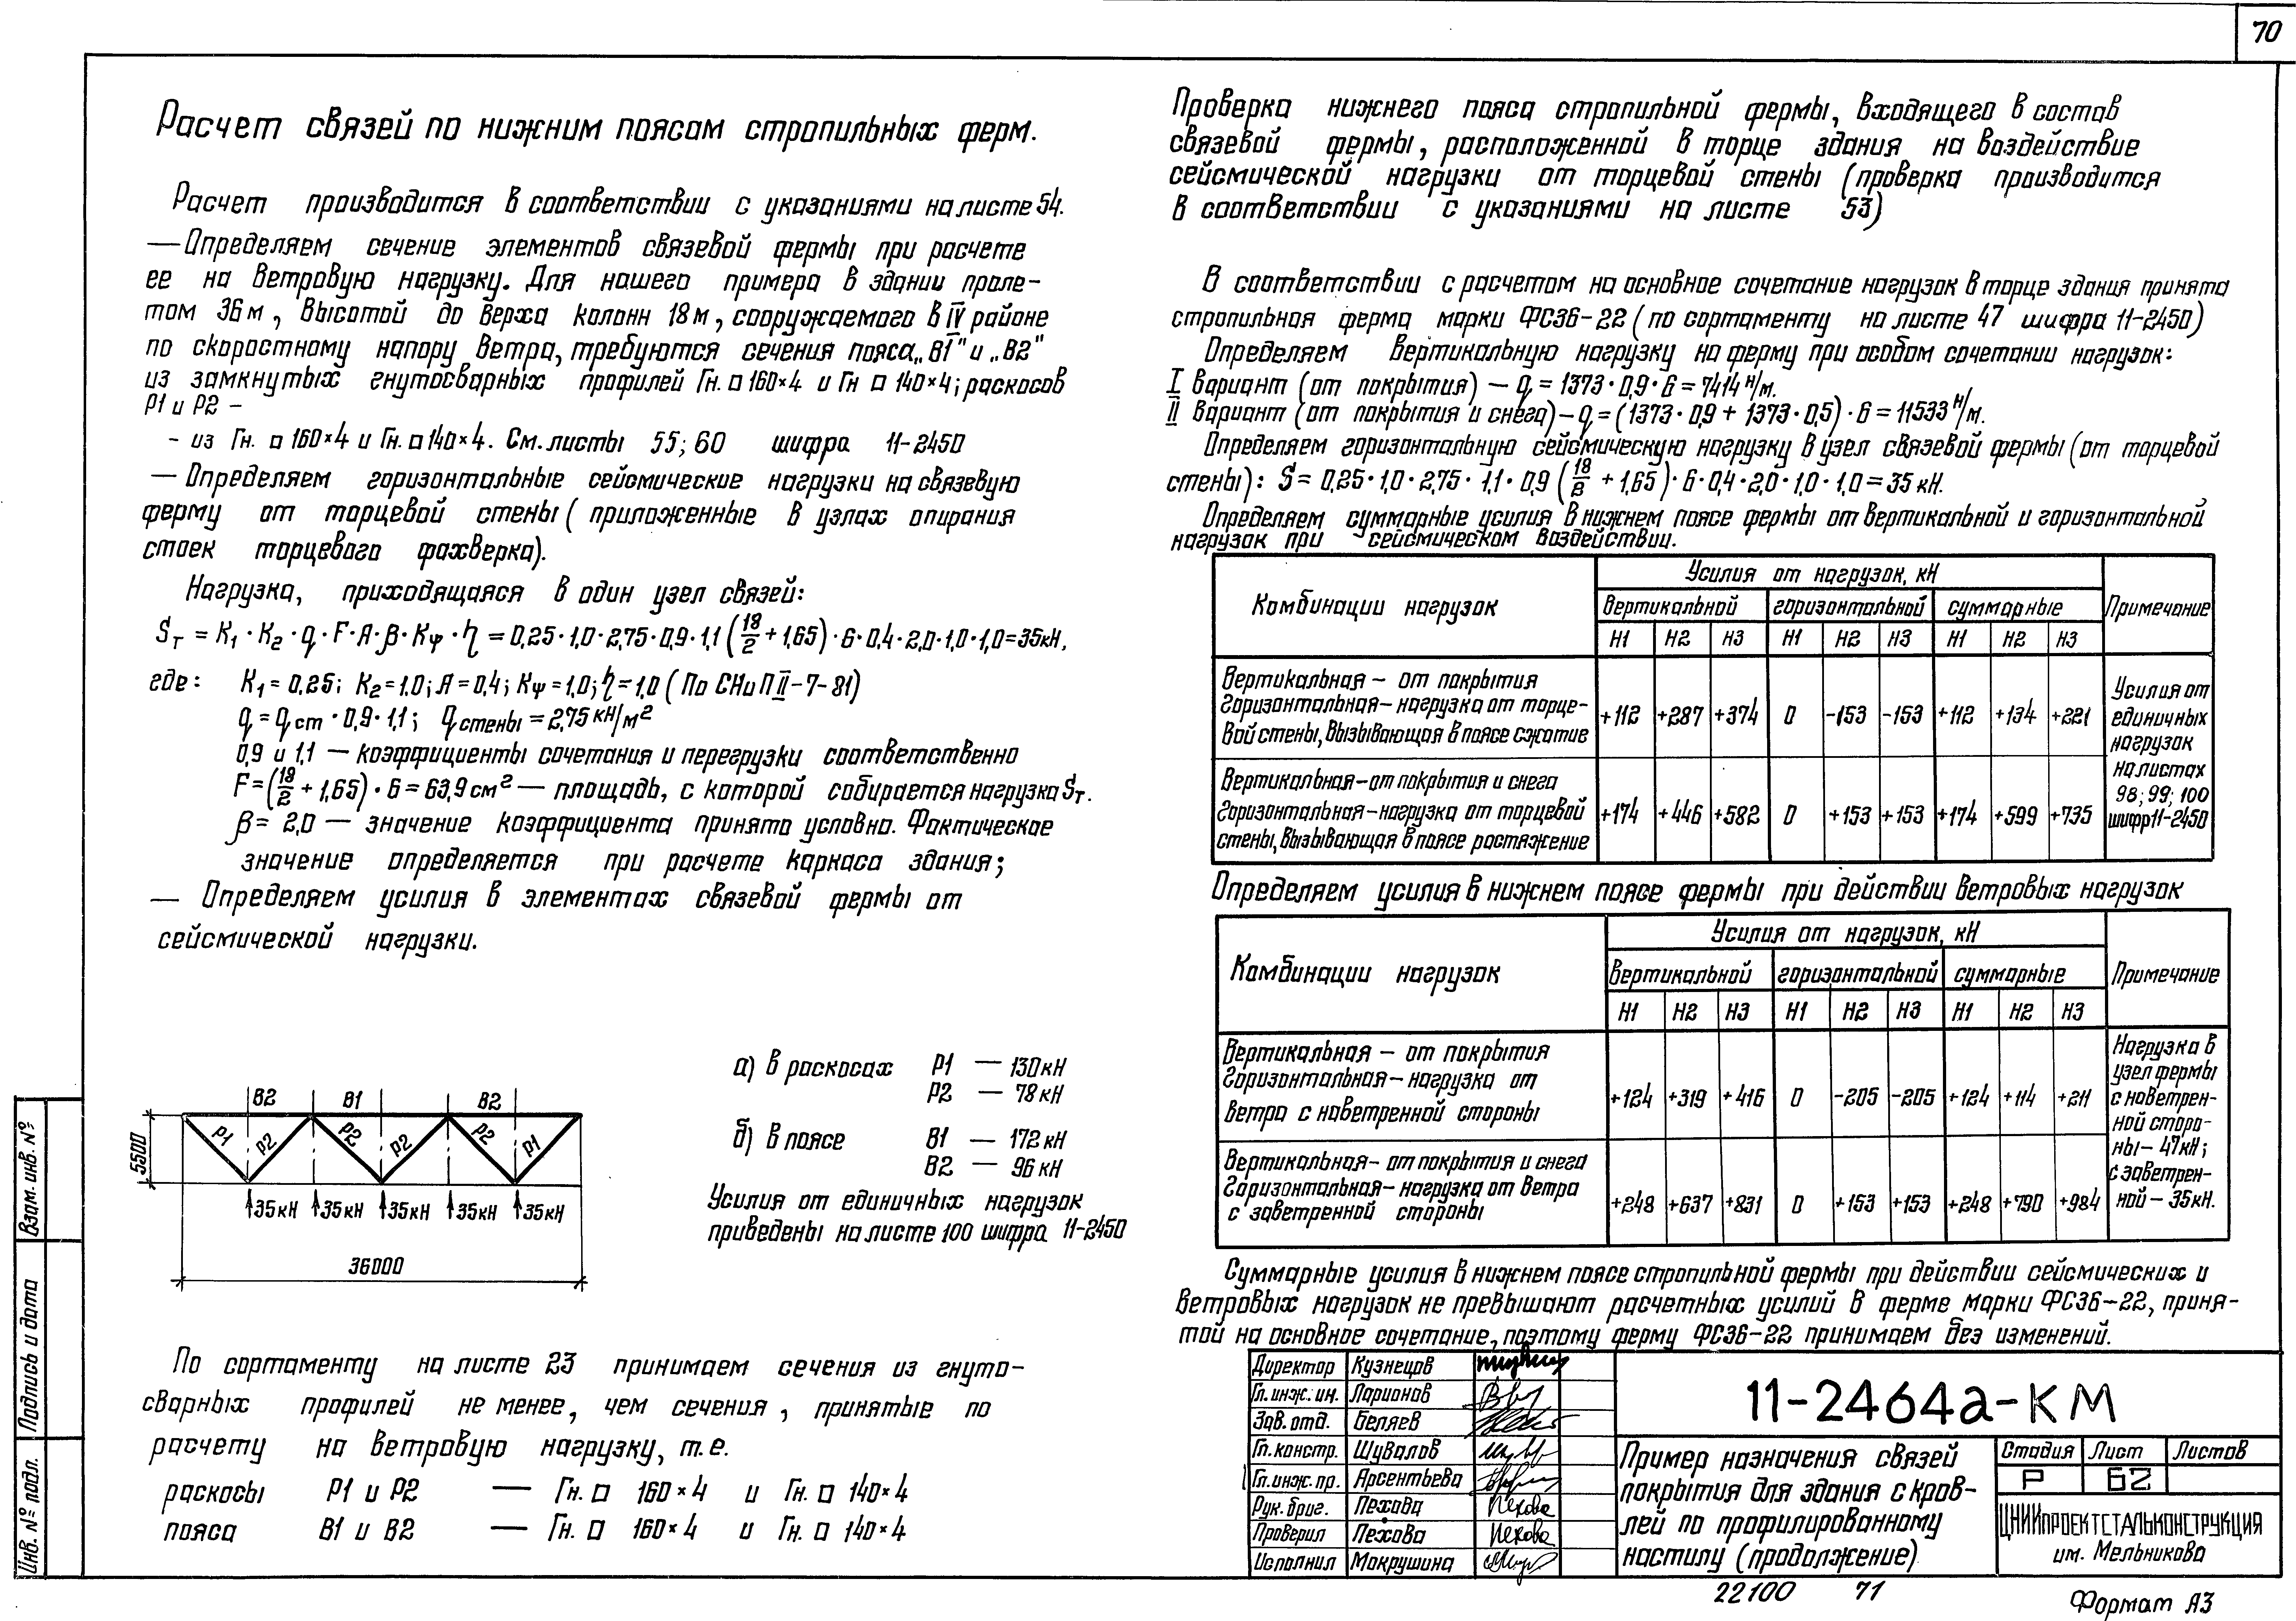 70
Расчет связей по нижним поясам стропильных ферм.
Расчет производится в соответствии с указаниями на листе 54.
— Определяем сечение элементов связевой фермы при расчете
ее на ветровую нагрузку. Для нашего примера в здании проле-
том 36 м, высотой до верха колонн 18 м, сооружаемого в IV районе
по скоростному напору ветра, требуются сечения пояса „В1" и „В2"
из замкнутых гнутосварных профилей Гн. □ 160×4 и Гн □ 140×4; раскосов
Р1 и Р2 –
- из Гн. □ 160×4 и Гн. □ 140×4. См. листы 55; 60 шифра 11-2450
— Определяем горизонтальные сейсмические нагрузки на связевую
ферму от торцевой стены (приложенные в узлах опирания
стоек торцевого фахверка).
Нагрузка, приходящаяся в один узел связей:
Sт = К1 · К2 · q · F · А · β · Кψ · η = 0,25·1,0·2,75·0,9·1,1 (18/2 + 1,65) · 6 · 0,4 · 2,0 · 1,0 · 1,0 = 35кН,
где: К1 = 0,25; К2 = 1,0; А = 0,4; Кψ = 1,0; η = 1,0 (По СНиП II-7-81)
q = qст · 0,9 · 1,1; qстены = 2,75 кН/м²
0,9 и 1,1 — коэффициенты сочетания и перегрузки соответственно
F = (18/2 + 1,65) · 6 = 63,9 см² — площадь, с которой собирается нагрузка Sт.
β = 2,0 — значение коэффициента принято условно. Фактическое
значение определяется при расчете каркаса здания;
— Определяем усилия в элементах связевой фермы от
сейсмической нагрузки.
В2 В1 В2
Р1 Р2 Р2 Р2 Р2 Р1
5500
35кН 35кН 35кН 35кН 35кН
36000
а) в раскосах Р1 — 130кН
Р2 — 78 кН
б) в поясе В1 — 172 кН
В2 — 96 кН
Усилия от единичных нагрузок
приведены на листе 100 шифра 11-2450
По сортаменту на листе 23 принимаем сечения из гнуто-
сварных профилей не менее, чем сечения, принятые по
расчету на ветровую нагрузку, т.е.
раскосы Р1 и Р2 — Гн. □ 160×4 и Гн. □ 140×4
пояса В1 и В2 — Гн. □ 160×4 и Гн. □ 140×4
Проверка нижнего пояса стропильной фермы, входящего в состав
связевой фермы, расположенной в торце здания на воздействие
сейсмической нагрузки от торцевой стены (проверка производится
в соответствии с указаниями на листе 53)
В соответствии с расчетом на основное сочетание нагрузок в торце здания принята
стропильная ферма марки ФС36-22 (по сортаменту на листе 47 шифра 11-2450)
Определяем вертикальную нагрузку на ферму при особом сочетании нагрузок:
I вариант (от покрытия) — q = 1373 · 0,9 · 6 = 7414 н/м.
II вариант (от покрытия и снега) – q = (1373 · 0,9 + 1373 · 0,5) · 6 = 11533 н/м.
Определяем горизонтальную сейсмическую нагрузку в узел связевой фермы (от торцевой
стены): S = 0,25 · 1,0 · 2,75 · 1,1 · 0,9 (18/2 + 1,65) · 6 · 0,4 · 2,0 · 1,0 · 1,0 = 35 кН.
Определяем суммарные усилия в нижнем поясе фермы от вертикальной и горизонтальной
нагрузок при сейсмическом воздействии.
Комбинации нагрузок Усилия от нагрузок, кН Примечание
вертикальной горизонтальной суммарные
Н1 Н2 Н3 Н1 Н2 Н3 Н1 Н2 Н3
Вертикальная – от покрытия
Горизонтальная – нагрузка от торце-
вой стены, вызывающая в поясе сжатие
+112 +287 +374 0 -153 -153 +112 +134 +221
Вертикальная – от покрытия и снега
Горизонтальная – нагрузка от торцевой
стены, вызывающая в поясе растяжение
+174 +446 +582 0 +153 +153 +174 +599 +735
Усилия от
единичных
нагрузок
на листах
98; 99; 100
шифр 11-2450
Определяем усилия в нижнем поясе фермы при действии ветровых нагрузок
Комбинации нагрузок Усилия от нагрузок, кН Примечание
вертикальной горизонтальной суммарные
Н1 Н2 Н3 Н1 Н2 Н3 Н1 Н2 Н3
Вертикальная – от покрытия
Горизонтальная – нагрузка от
ветра с наветренной стороны
+124 +319 +416 0 -205 -205 +124 +114 +211
Вертикальная – от покрытия и снега
Горизонтальная – нагрузка от ветра
с заветренной стороны
+248 +637 +831 0 +153 +153 +248 +790 +984
Нагрузка в
узел фермы
с наветрен-
ной сторо-
ны – 47кН;
с заветрен-
ной – 35кН.
Суммарные усилия в нижнем поясе стропильной фермы при действии сейсмических и
ветровых нагрузок не превышают расчетных усилий в ферме марки ФС36-22, приня-
той на основное сочетание, поэтому ферму ФС36-22 принимаем без изменений.
Директор Кузнецов
Гл. инж. ин. Ларионов
Зав. отд. Беляев
Гл. констр. Шувалов
Гл. инж. пр. Арсентьева
Рук. бриг. Пехова Пехова
Проверил Пехова Пехова
Исполнил Мокрушина
11-2464а-КМ
Пример назначения связей
покрытия для здания с кров-
лей по профилированному
настилу (продолжение)
Стадия Лист Листов
Р 62
ЦНИИПРОЕКТСТАЛЬКОНСТРУКЦИЯ
им. Мельникова
22100 71
Формат А3
Взам. инв. №
Подпись и дата
Инв. № подл.